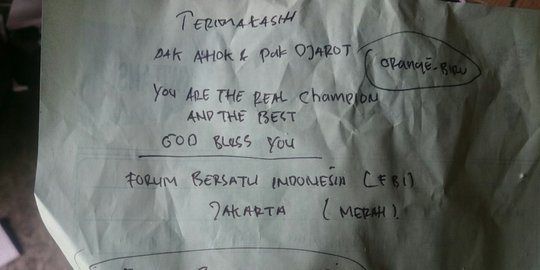 TERIMAKASIH
PAK AHOK & PAK DJAROT
ORANGE-BIRU
YOU ARE THE REAL Champion
AND THE BEST
GOD BLESS YOU
FORUM BERSATU INDONESIA (FBI)
JAKARTA (MERAH)